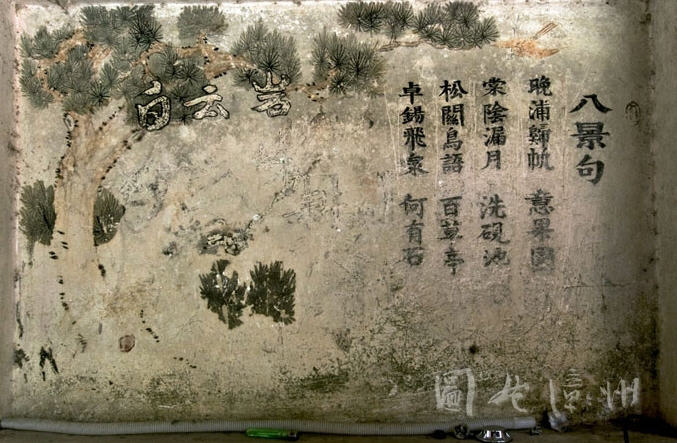 八景句
晚浦歸帆 意果園
棠陰漏月 洗硯池
松關鳥語 百草亭
卓錫飛泉 何有石
白云岩
圖說漳州